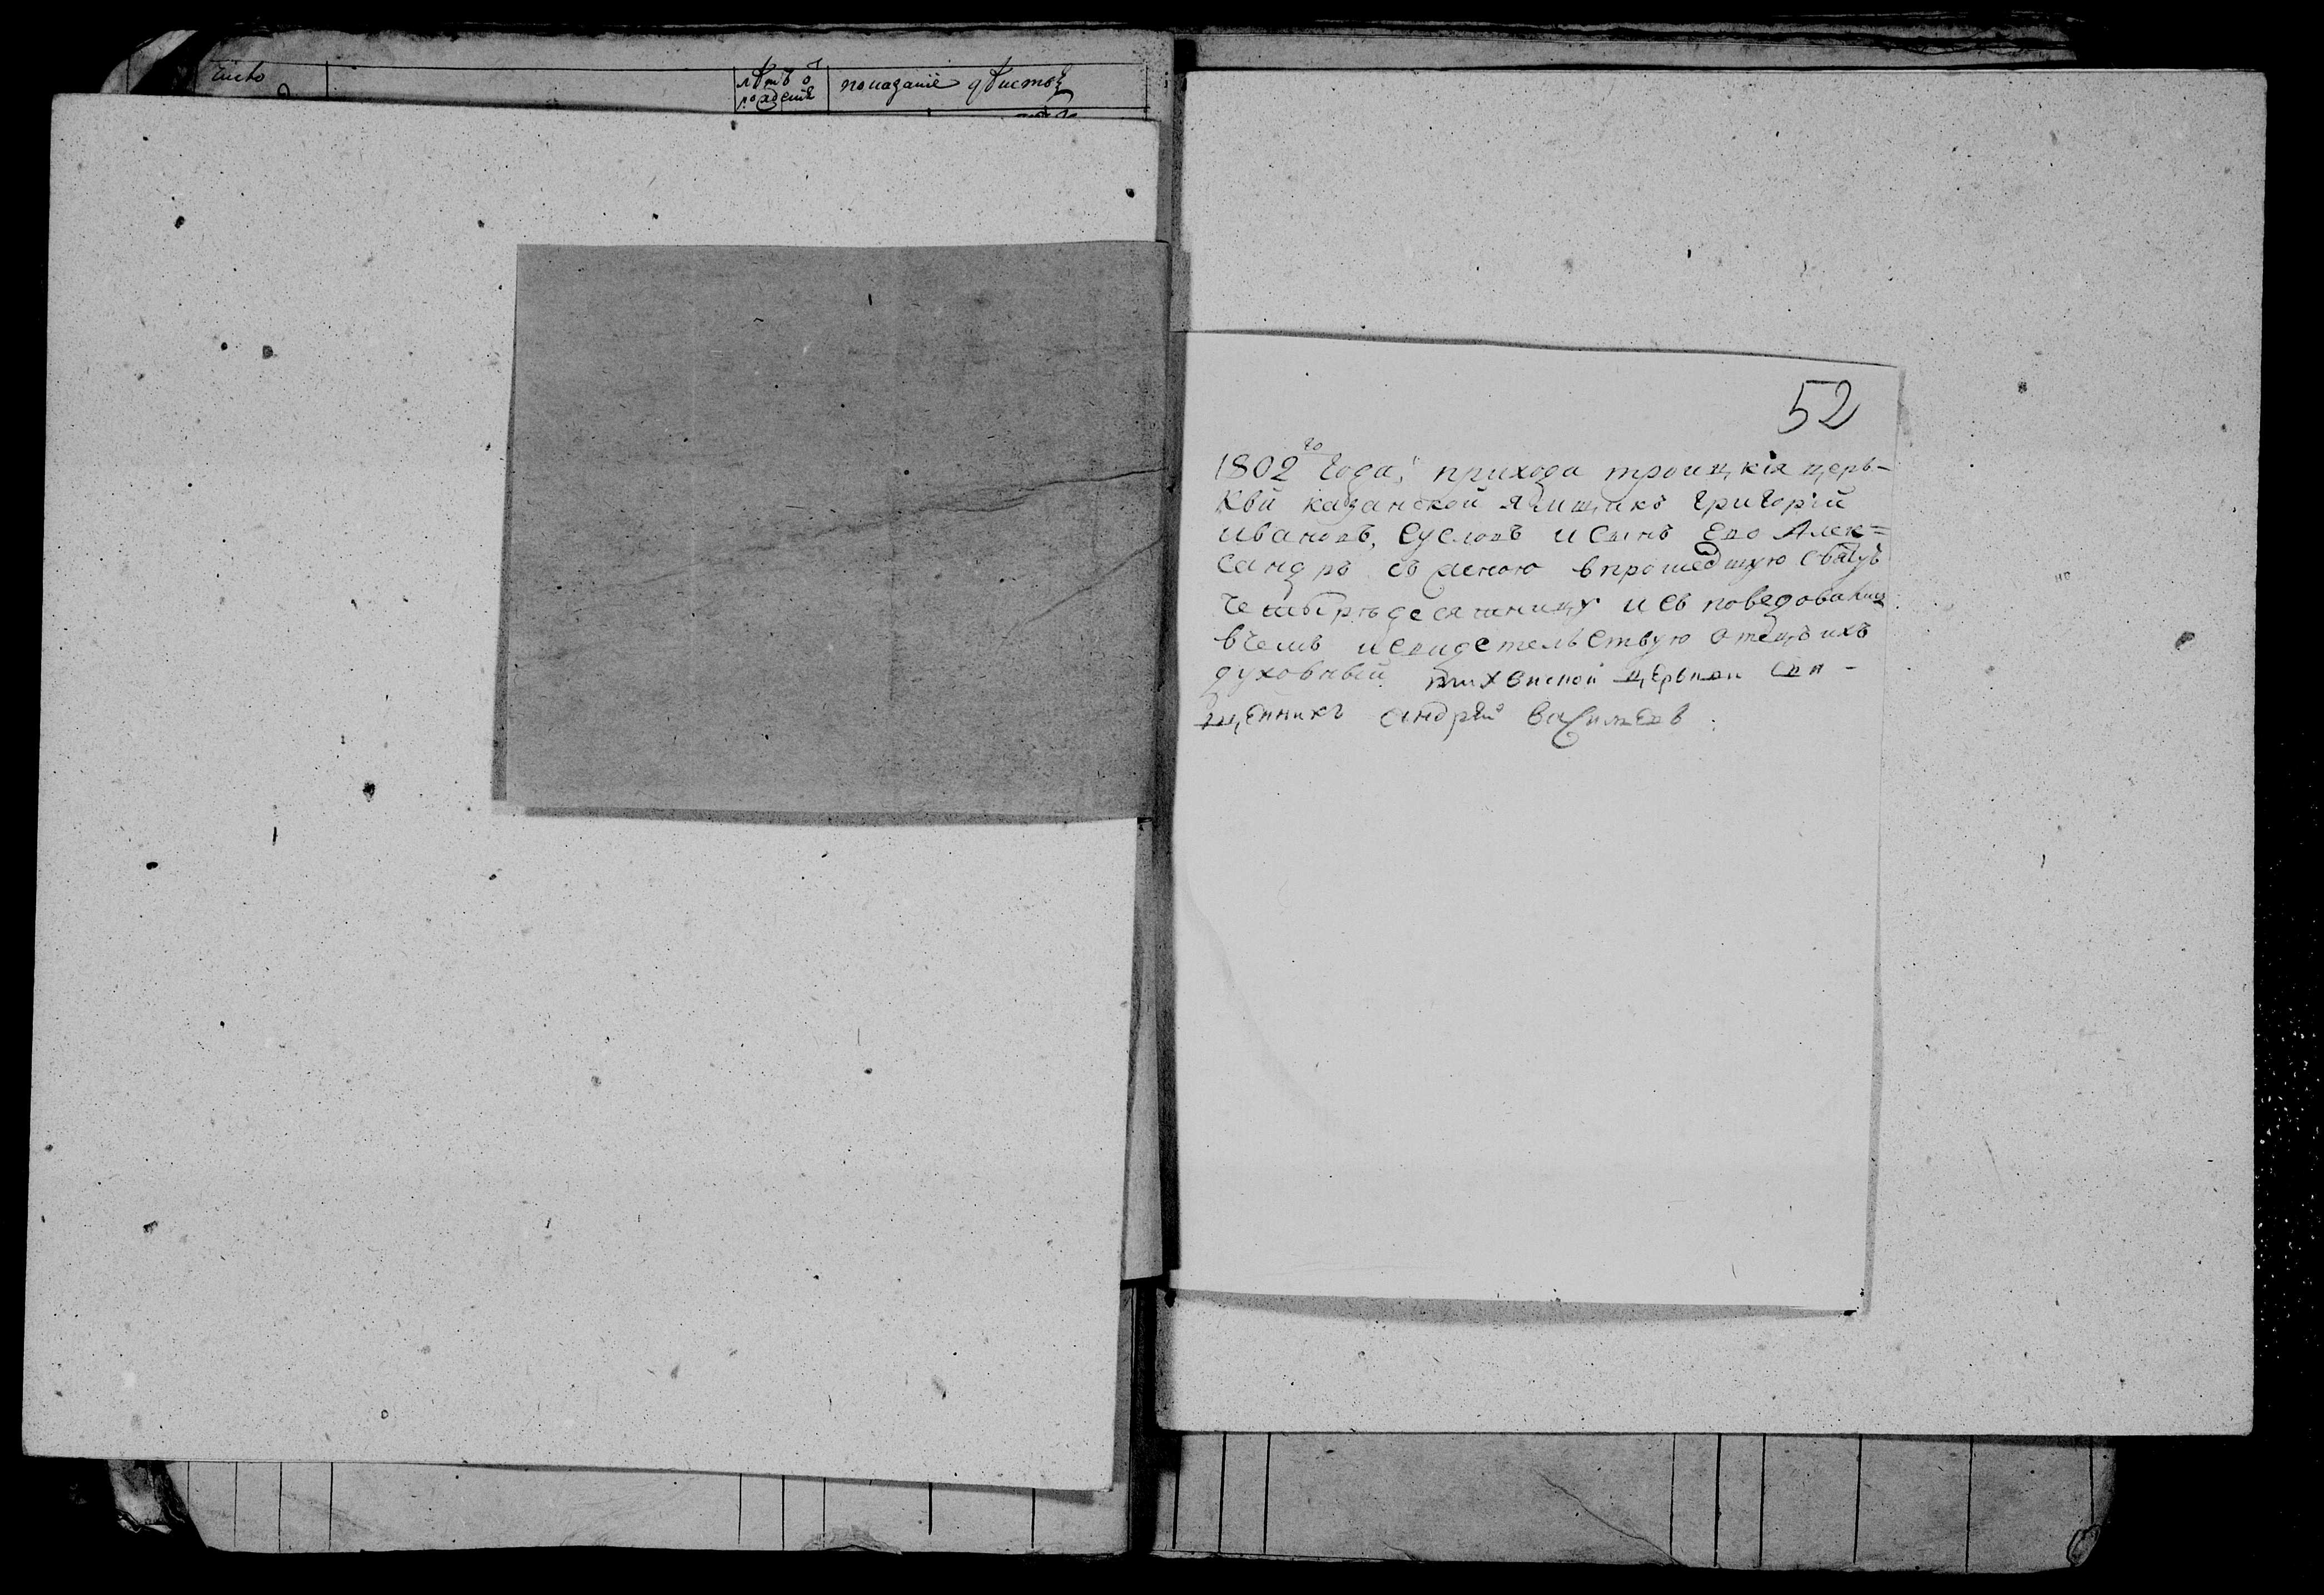 число
лѣтъ о
рожденія
показаніе дѣистваꙗ
52
1802го Года, прихода троицкія церь-
кви казанской ямщикъ григорій
ивановъ, Сусловъ и Сынъ Ево Алек=
сандръ съ женою впрошедшую Святую
Четыредесятницу исповедовались
вчемъ исвидетельствую отецъ ихъ
духовный тихвинской церькви Свя-
щенникъ андрей василевъ